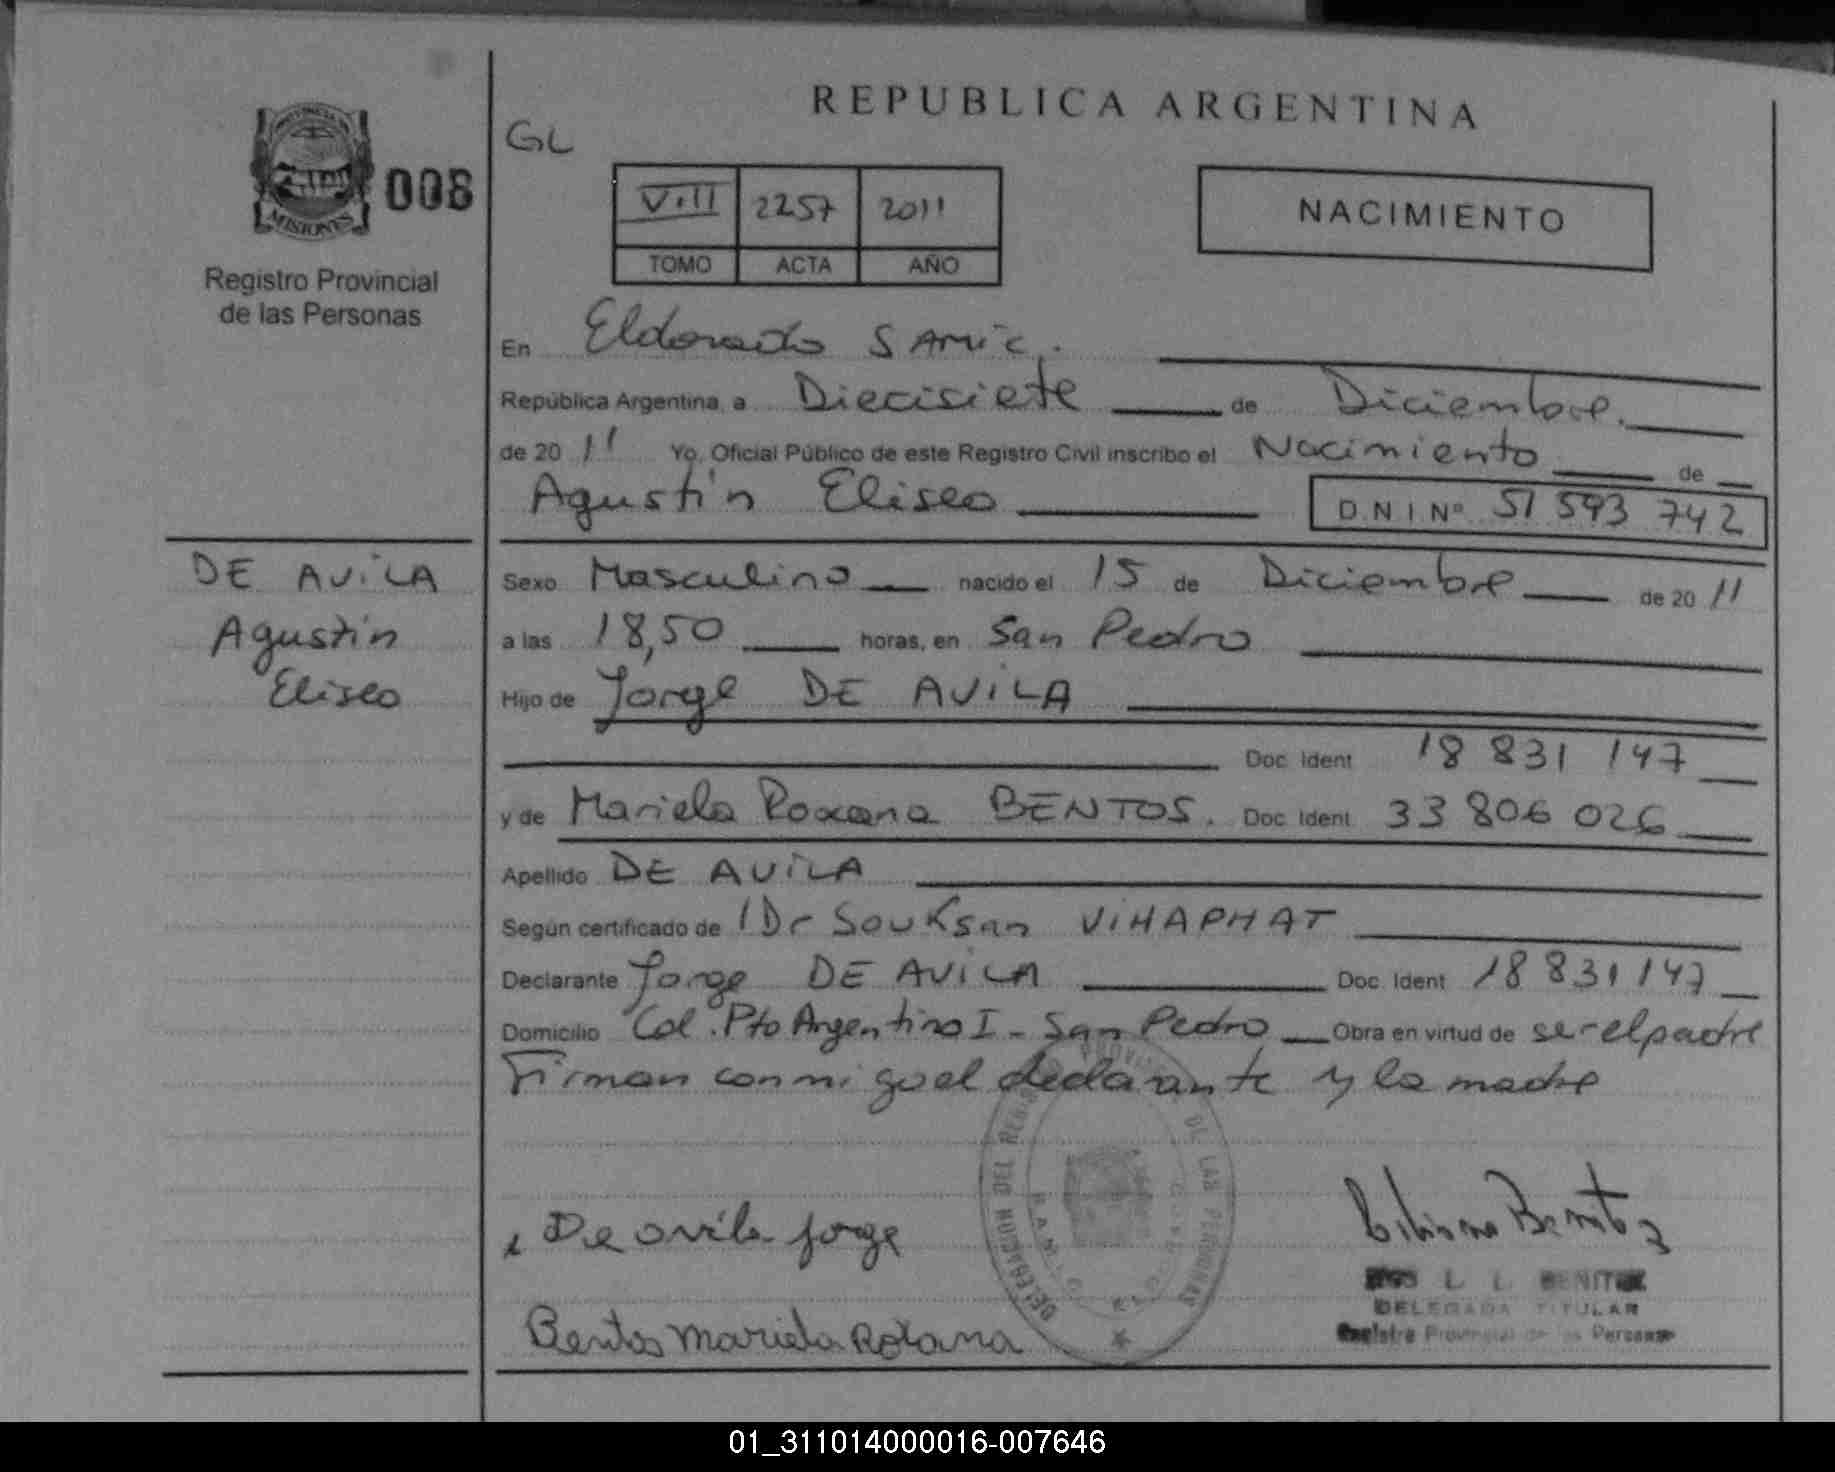 REPUBLICA ARGENTINA
GL
MISIONES
008
Registro Provincial
de las Personas
VIII 2257 2011
TOMO ACTA AÑO
NACIMIENTO
En Eldorado SAMIC.
República Argentina, a Diecisiete de Diciembre.
de 20 11 Yo, Oficial Público de este Registro Civil inscribo el Nacimiento de
Agustín Eliseo D.N.I. Nº 51 593 742
DE AVILA
Agustín
Eliseo
Sexo Masculino nacido el 15 de Diciembre de 20 11
a las 18,50 horas, en San Pedro
Hijo de Jorge DE AVILA
Doc. Ident 18 831 147
y de Mariela Roxana BENTOS. Doc. Ident. 33 806 026
Apellido DE AVILA
Según certificado de Dr Souksan VIHAPHAT
Declarante Jorge DE AVILA Doc. Ident 18 831 147
Domicilio Col. Pto Argentino I - San Pedro Obra en virtud de ser el padre
Firman conmigo el declarante y la madre
DELEGACION DEL REGISTRO PROVINCIAL DE LAS PERSONAS
De avila Jorge
Bentos Mariela Roxana
L. L. BENITEZ
DELEGADA TITULAR
Registro Provincial de las Personas
01_311014000016-007646